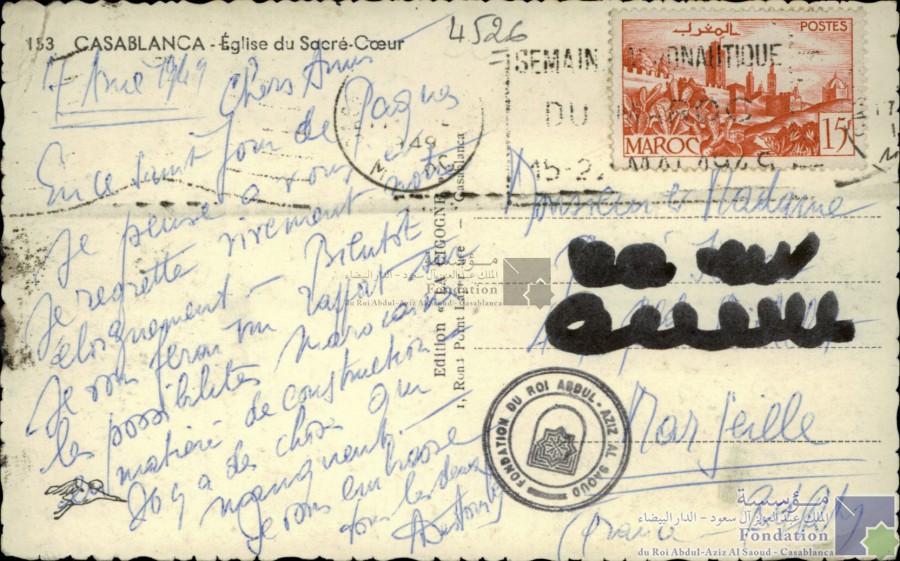 4526
153 CASABLANCA - Église du Sacré-Cœur
1949
Chers Amis
En ce saint jour de Paques
Je pense à vous et
Je regrette vivement notre
éloignement - Bientôt
Je vous ferai un rapport sur
les possibilités marocaines
en matière de construction
Il y a des choses qui
manquent. -
Je vous embrasse
tous les deux
Edition «LA CIGOGNE»
1, Rond Point - Casablanca
SEMAIN AERONAUTIQUE
DU MAROC
15-22 MAI 1949
المغرب
POSTES
MAROC
15F
Monsieur et Madame
Marseille
(France
FONDATION DU ROI ABDUL-AZIZ AL SAOUD
مؤسسة
الملك عبد العزيز آل سعود - الدار البيضاء
Fondation
du Roi Abdul-Aziz Al Saoud - Casablanca
مؤسسة
الملك عبد العزيز آل سعود - الدار البيضاء
Fondation
du Roi Abdul-Aziz Al Saoud - Casablanca